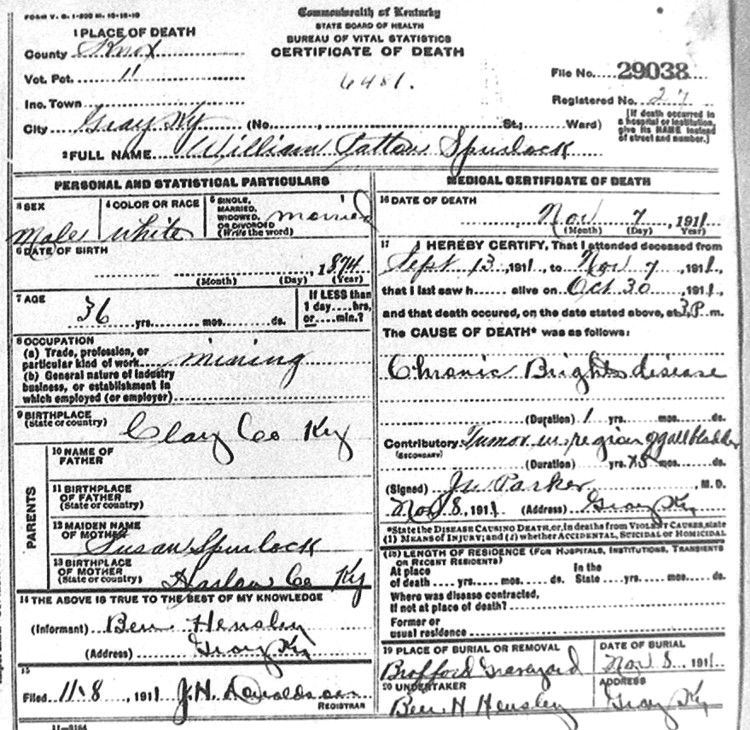 FORM V. S. 1-200 M. 10-18-10
Commonwealth of Kentucky
STATE BOARD OF HEALTH
BUREAU OF VITAL STATISTICS
CERTIFICATE OF DEATH
6481.
1 PLACE OF DEATH
County Knox
Vot. Pct. 11
Inc. Town
City Gray Ky (No. , St.; Ward)
File No. 29038
Registered No. 27
[If death occurred in a hospital or institution, give its NAME instead of street and number.]
2 FULL NAME William Patton Spurlock
PERSONAL AND STATISTICAL PARTICULARS
3 SEX
Male
4 COLOR OR RACE
White
5 SINGLE, MARRIED, WIDOWED, OR DIVORCED (Write the word) married
6 DATE OF BIRTH
, 1874
(Month) (Day) (Year)
7 AGE
36 yrs. mos. ds.
If LESS than 1 day hrs, or min.?
8 OCCUPATION
(a) Trade, profession, or particular kind of work mining
(b) General nature of industry business, or establishment in which employed (or employer)
9 BIRTHPLACE
(State or country)
Clay Co Ky
PARENTS
10 NAME OF FATHER
11 BIRTHPLACE OF FATHER
(State or country)
12 MAIDEN NAME OF MOTHER
Susan Spurlock
13 BIRTHPLACE OF MOTHER
(State or country) Harlan Co Ky
14 THE ABOVE IS TRUE TO THE BEST OF MY KNOWLEDGE
(Informant) Ben Hensley
(Address) Gray Ky
15
Filed 11-8, 1911 J.H. Donaldson
REGISTRAR
11-3184
MEDICAL CERTIFICATE OF DEATH
16 DATE OF DEATH
Nov 7, 1911
(Month) (Day) (Year)
17 I HEREBY CERTIFY, That I attended deceased from
Sept 13, 1911, to Nov 7, 1911,
that I last saw h alive on Oct 30 1911
and that death occured, on the date stated above, at 3 P. m.
The CAUSE OF DEATH* was as follows:
Chronic Brights disease
(Duration) 1 yrs. mos. ds.
Contributory Tumor in region of gall bladder
(SECONDARY)
(Duration) yrs. ds.
(Signed) Parker M.D.
Nov 8, 1911 (Address) Gray Ky
*State the DISEASE CAUSING DEATH, or, in deaths from VIOLENT CAUSES, state (1) MEANS OF INJURY; and (2) whether ACCIDENTAL, SUICIDAL or HOMICIDAL
(18) LENGTH OF RESIDENCE (FOR HOSPITALS, INSTITUTIONS, TRANSIENTS OR RECENT RESIDENTS)
At place of death yrs. mos. ds. In the State yrs. mos. ds.
Where was disease contracted,
If not at place of death?
Former or usual residence
19 PLACE OF BURIAL OR REMOVAL
Brafford Graveyard
DATE OF BURIAL
Nov 8, 1911
20 UNDERTAKER
Ben H Hensley
ADDRESS
Gray Ky